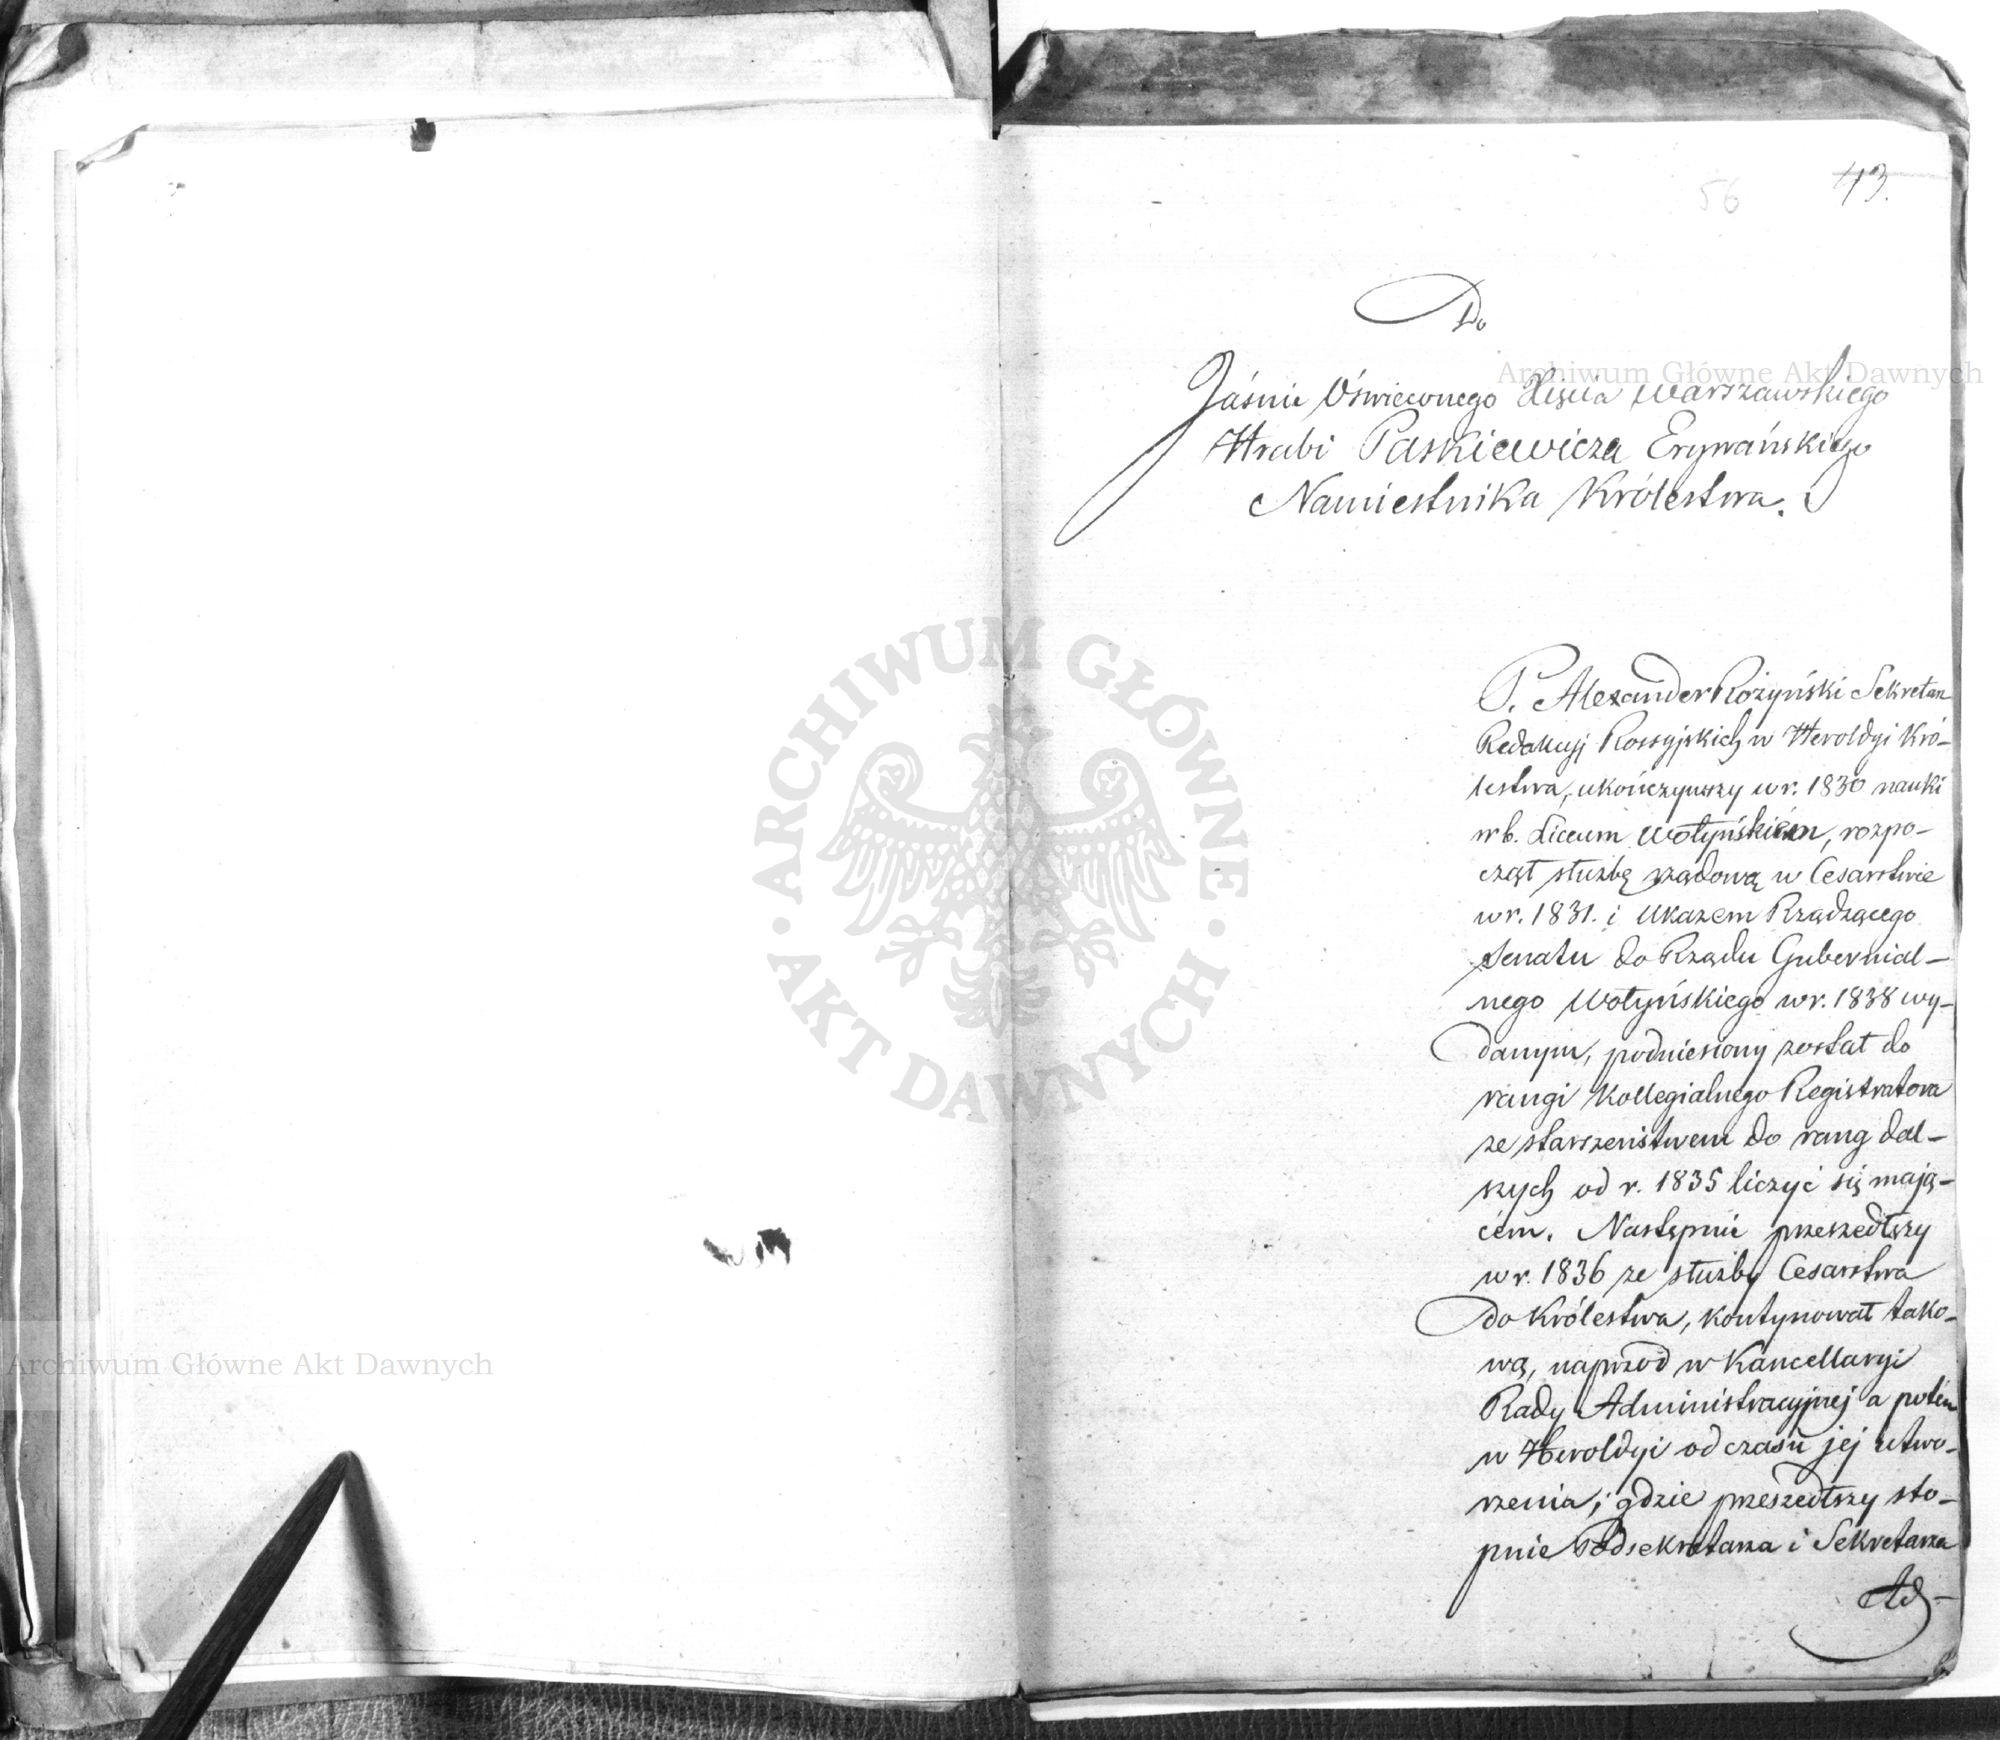 56 43.
Do
Jaśnie Oświeconego Xięcia Warszawskiego
Hrabi Paskiewicza Erywańskiego
Namiestnika Królestwa.
P. Alexander Rożyński Sekretarz
Redakcyj Rossyjskich w Heroldyi Kró-
lestwa, ukończywszy w r. 1830 nauki
w b. Liceum Wołyńskiem, rozpo-
czął służbę rządową w Cesarstwie
w r. 1831. i Ukazem Rządzącego
Senatu do Rządu Gubernial-
nego Wołyńskiego w r. 1838 wy-
danym, podniesiony został do
rangi Kollegialnego Registratora
ze starszeństwem do rang dal-
szych od r. 1835 liczyć się mają-
cém. Następnie przeszedłszy
w r. 1836 ze służby Cesarstwa
do Królestwa, kontynował tako-
wą, naprzód w Kancellaryi
Rady Administracyjnej a potém
w Heroldyi od czasu jej utwo-
rzenia; gdzie przeszedłszy sto-
pnie Podsekretarza i Sekretarza
Ad-
Archiwum Główne Akt Dawnych
ARCHIWUM GŁÓWNE · AKT DAWNYCH ·
Archiwum Główne Akt Dawnych